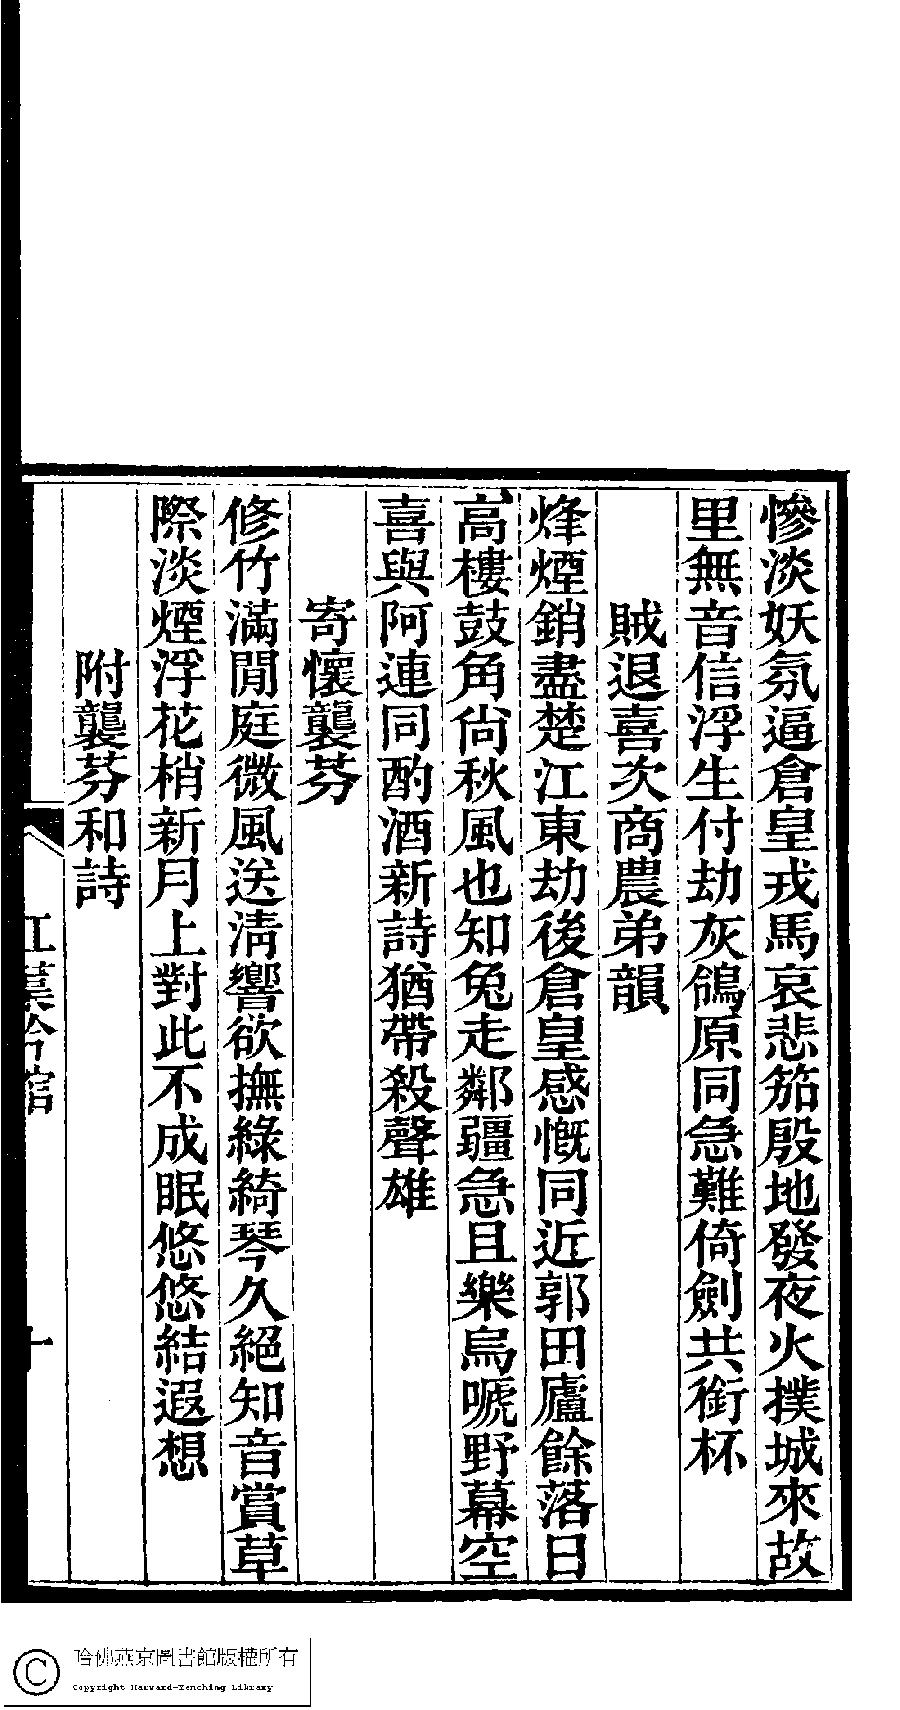 慘淡妖氛逼倉皇戎馬哀悲笳殷地發夜火撲城來故
里無音信浮生付劫灰鴒原同急難倚劍共銜杯
賊退喜次商農弟韻
烽煙銷盡楚江東劫後倉皇感慨同近郭田廬餘落日
高樓鼓角尚秋風也知兔走鄰疆急且樂烏嗁野幕空
喜與阿連同酌酒新詩猶帶殺聲雄
寄懷襲芬
修竹滿閒庭微風送淸響欲撫綠綺琴久絕知音賞草
際淡煙浮花梢新月上對此不成眠悠悠結遐想
附襲芬和詩
哈佛燕京圖書館版權所有
Copyright Harvard-Yenching Library